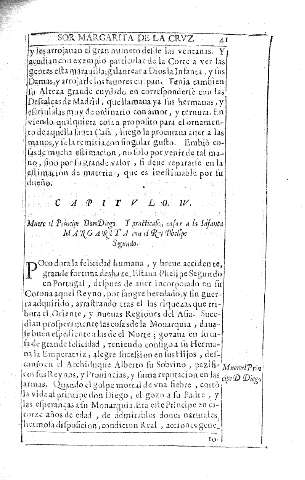 SOR MARGARITA DE LA CRVZ 41
y les arrojauan el gran numero desde las ventanas. Y
acudian con exemplo particular de la Corte a ver las
gentes esta marauilla, galantear a Dios la Infanta, y sus
Damas, y arrojarle los fauores en pan. Tenia tambien
su Alteza grande cuydado en corresponderse con las
Descalças de Madrid, que llamaua ya sus hermanas, y
escriuialas muy de ordinario con amor, y ternura. En
viendo qualquiera cosa a proposito para el ornamen-
to de aquella santa Casa, luego la procuraua auer a las
manos, y la remitia con singular gusto. Embiò co-
sas de mucha estimacion, no solo por venir de tal ma-
no, sino por su grande valor, si deue repararse en la
estimacion de materia, que es inestimable por su
dueño.
CAPITVLO. IV.
Muere el Principe Don Diego. Y practicase, casar a la Infanta
MARGARITA con el REY Phelipe
Segundo.
POco dora la felicidad humana, y breue accidente,
grande fortuna deshaze. Estaua Phelipe Segundo
en Portugal, despues de auer incorporado en su
Corona aquel Reyno, por sangre heredado, y por guer
ra adquirido, arrastrando tras el las riquezas que tri-
buta el Oriente, y nueuas Regiones del Asia. Suce-
dian prosperamente las cosas de la Monarquia, dauã
se buen expediente a las de el Norte; gozaua en suma
de grande felicidad, teniendo consigo a su Herma-
na la Emperatriz, alegre sucession en los Hijos, des-
canso en el Archiduque Alberto su Sobrino, pazifi-
cos sus Reynos, y Prouincias, y suma reputacion en las
armas. Quando el golpe mortal de vna fiebre, cortò
la vida al principe don Diego, el gozo a su Padre, y
las esperanças a su Monarquia. Era este Principe en ca-
torze años de edad, de admirables dones naturales,
hermosa disposicion, condicion Real, acciones gene-
ro
Muere el Prin
cipe D. Diego